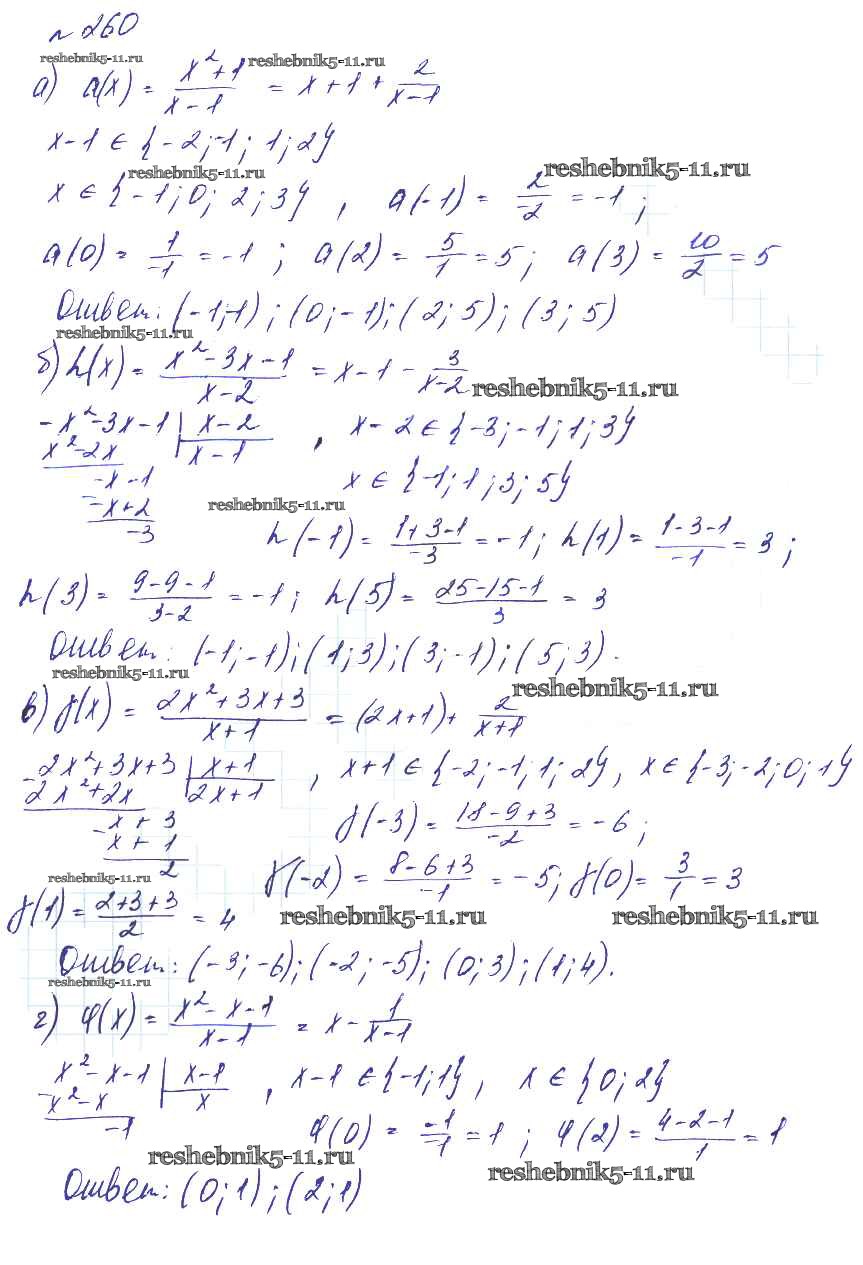 № 260
reshebnik5-11.ru reshebnik5-11.ru
а) a(x) = (x²+1)/(x-1) = x+1 + 2/(x-1)
x-1 ∈ {-2; -1; 1; 2}
reshebnik5-11.ru reshebnik5-11.ru
x ∈ {-1; 0; 2; 3}, a(-1) = 2/-2 = -1;
a(0) = 1/-1 = -1; a(2) = 5/1 = 5; a(3) = 10/2 = 5
Ответ: (-1; -1); (0; -1); (2; 5); (3; 5)
reshebnik5-11.ru
б) h(x) = (x²-3x-1)/(x-2) = x-1 - 3/(x-2)
reshebnik5-11.ru
-x²-3x-1 | x-2, x-2 ∈ {-3; -1; 1; 3}
x²-2x | x-1
-x-1 x ∈ {-1; 1; 3; 5}
-x+2 reshebnik5-11.ru
-3
h(-1) = (1+3-1)/-3 = -1; h(1) = (1-3-1)/-1 = 3;
h(3) = (9-9-1)/(3-2) = -1; h(5) = (25-15-1)/3 = 3
Ответ: (-1; -1); (1; 3); (3; -1); (5; 3).
reshebnik5-11.ru reshebnik5-11.ru
в) f(x) = (2x²+3x+3)/(x+1) = (2x+1) + 2/(x+1)
-2x²+3x+3 | x+1, x+1 ∈ {-2; -1; 1; 2}, x ∈ {-3; -2; 0; 1}
2x²+2x | 2x+1
-x+3 f(-3) = (18-9+3)/-2 = -6;
x+1
2
reshebnik5-11.ru f(-2) = (8-6+3)/-1 = -5; f(0) = 3/1 = 3
f(1) = (2+3+3)/2 = 4 reshebnik5-11.ru reshebnik5-11.ru
Ответ: (-3; -6); (-2; -5); (0; 3); (1; 4).
reshebnik5-11.ru
г) φ(x) = (x²-x-1)/(x-1) = x - 1/(x-1)
x²-x-1 | x-1, x-1 ∈ {-1; 1}, x ∈ {0; 2}
-x²-x | x
-1 φ(0) = -1/-1 = 1; φ(2) = (4-2-1)/1 = 1
reshebnik5-11.ru reshebnik5-11.ru
Ответ: (0; 1); (2; 1)